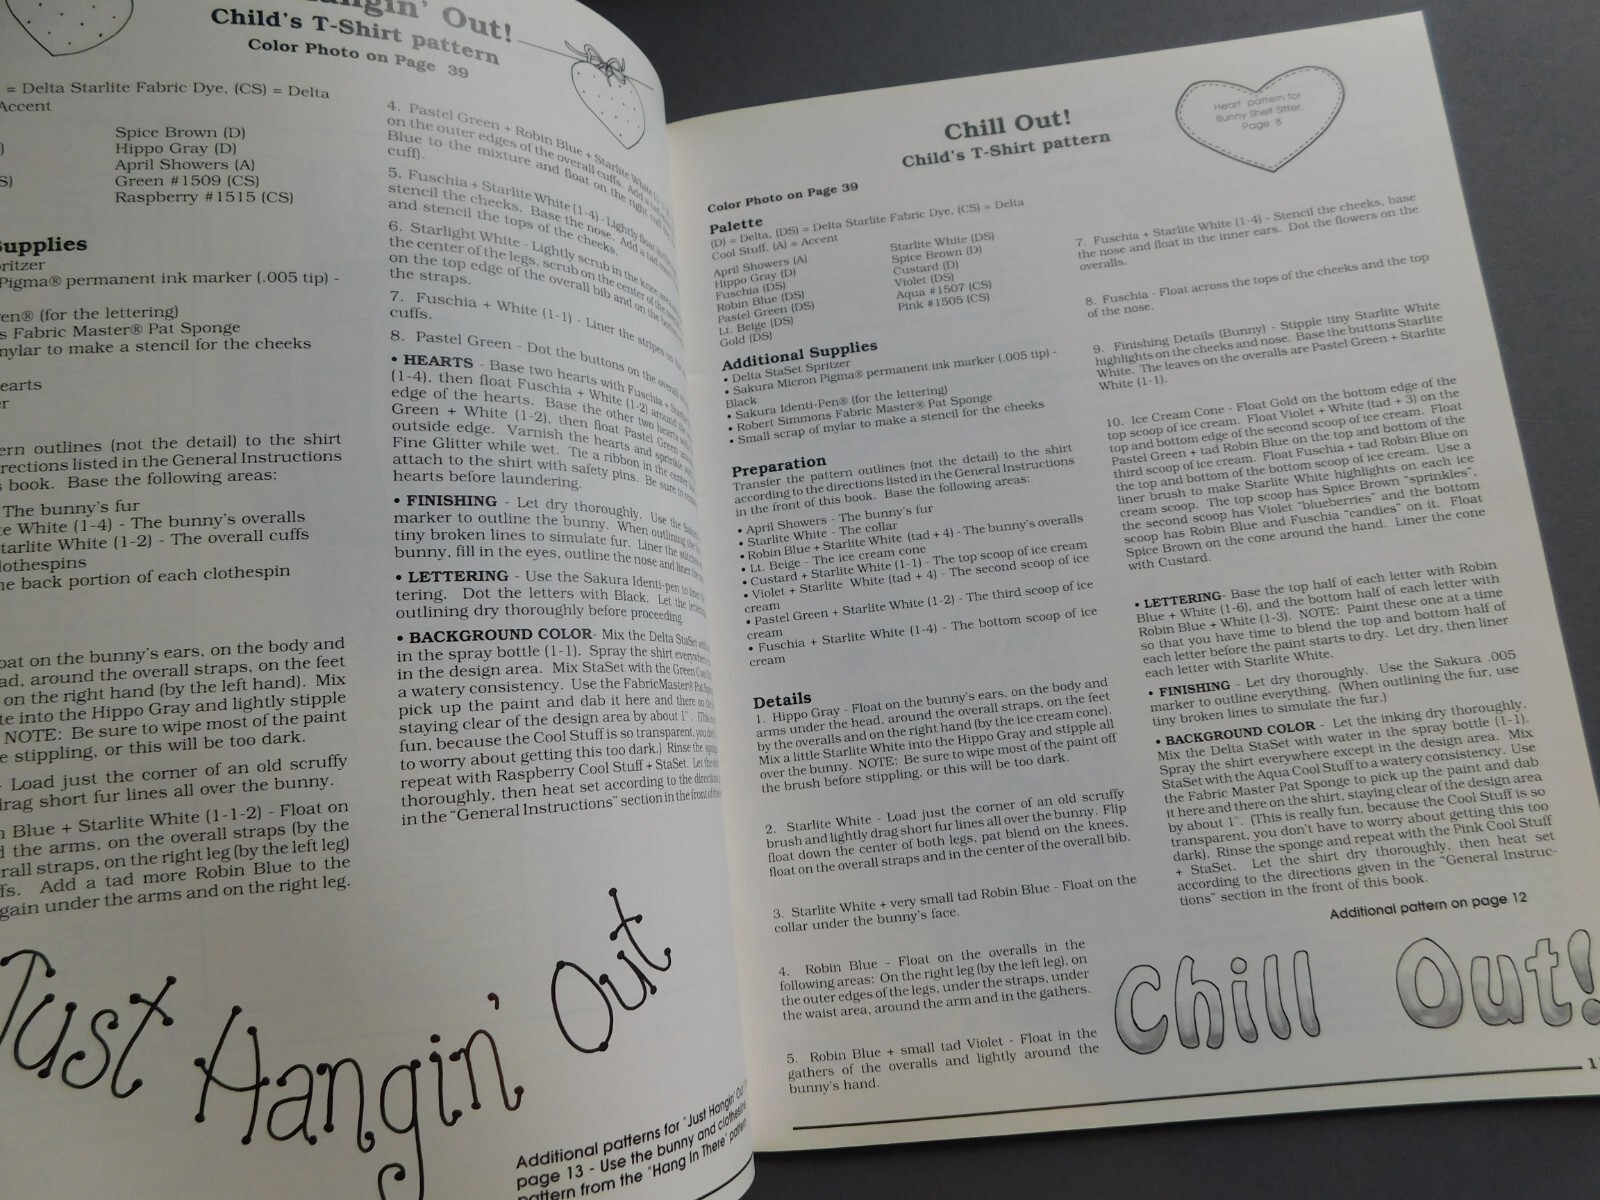 Hangin' Out!
Child's T-Shirt pattern
Color Photo on Page 39
= Delta Starlite Fabric Dye, (CS) = Delta
Accent
Spice Brown (D)
Hippo Gray (D)
April Showers (A)
Green #1509 (CS)
Raspberry #1515 (CS)
Supplies
permanent ink marker (.005 tip) -
(for the lettering)
Fabric Master® Pat Sponge
mylar to make a stencil for the cheeks
outlines (not the detail) to the shirt
directions listed in the General Instructions
book. Base the following areas:
The bunny's fur
White (1-4) - The bunny's overalls
Starlite White (1-2) - The overall cuffs
clothespins
back portion of each clothespin
on the bunny's ears, on the body and
around the overall straps, on the feet
on the right hand (by the left hand). Mix
into the Hippo Gray and lightly stipple
NOTE: Be sure to wipe most of the paint
stippling, or this will be too dark.
- Load just the corner of an old scruffy
drag short fur lines all over the bunny.
Blue + Starlite White (1-1-2) - Float on
the arms, on the overall straps (by the
straps, on the right leg (by the left leg)
Add a tad more Robin Blue to the
again under the arms and on the right leg.
4. Pastel Green + Robin Blue + Starlite White
on the outer edges of the overall cuffs. Add a tad
Blue to the mixture and float on the right
cuff).
5. Fuschia + Starlite White (1-4) - Lightly float
stencil the cheeks. Base the nose. Add a tad
and stencil the tops of the cheeks.
6. Starlight White - Lightly scrub in the knee
the center of the legs, scrub on the center of the
on the top edge of the overall bib and on the
the straps.
7. Fuschia + White (1-1) - Liner the stripes on the
cuffs.
8. Pastel Green - Dot the buttons on the overall
• HEARTS - Base two hearts with Fuschia +
(1-4), then float Fuschia + White (1-2) around the
edge of the hearts. Base the other two hearts
Green + White (1-2), then float Pastel Green
outside edge. Varnish the hearts and sprinkle
Fine Glitter while wet. Tie a ribbon in the center
attach to the shirt with safety pins. Be sure to
hearts before laundering.
• FINISHING - Let dry thoroughly. Use the
marker to outline the bunny. When outlining the
tiny broken lines to simulate fur. Liner the
bunny, fill in the eyes, outline the nose and liner
• LETTERING - Use the Sakura Identi-pen to
tering. Dot the letters with Black. Let the
outlining dry thoroughly before proceeding.
• BACKGROUND COLOR- Mix the Delta StaSet
in the spray bottle (1-1). Spray the shirt everywhere
in the design area. Mix StaSet with the Green
a watery consistency. Use the FabricMaster® Pat
pick up the paint and dab it here and there on
staying clear of the design area by about 1". (This
fun, because the Cool Stuff is so transparent, you
to worry about getting this too dark.) Rinse the
repeat with Raspberry Cool Stuff + StaSet. Let the
thoroughly, then heat set according to the
in the "General Instructions" section in the front of
Just Hangin' Out
Additional patterns for "Just Hangin' Out"
page 13 - Use the bunny and clothesline
pattern from the "Hang In There" pattern
Chill Out!
Child's T-Shirt pattern
Heart pattern for
Bunny Shelf Sitter,
Page 8
Color Photo on Page 39
Palette
(D) = Delta, (DS) = Delta Starlite Fabric Dye, (CS) = Delta
Cool Stuff, (A) = Accent
April Showers (A)
Hippo Gray (D)
Fuschia (DS)
Robin Blue (DS)
Pastel Green (DS)
Lt. Beige (DS)
Gold (DS)
Starlite White (DS)
Spice Brown (D)
Custard (D)
Violet (DS)
Aqua #1507 (CS)
Pink #1505 (CS)
Additional Supplies
• Delta StaSet Spritzer
• Sakura Micron Pigma® permanent ink marker (.005 tip) -
Black
• Sakura Identi-Pen® (for the lettering)
• Robert Simmons Fabric Master® Pat Sponge
• Small scrap of mylar to make a stencil for the cheeks
Preparation
Transfer the pattern outlines (not the detail) to the shirt
according to the directions listed in the General Instructions
in the front of this book. Base the following areas:
• April Showers - The bunny's fur
• Starlite White - The collar
• Robin Blue + Starlite White (tad + 4) - The bunny's overalls
• Lt. Beige - The ice cream cone
• Custard + Starlite White (1-1) - The top scoop of ice cream
• Violet + Starlite White (tad + 4) - The second scoop of ice
cream
• Pastel Green + Starlite White (1-2) - The third scoop of ice
cream
• Fuschia + Starlite White (1-4) - The bottom scoop of ice
cream
Details
1. Hippo Gray - Float on the bunny's ears, on the body and
arms under the head, around the overall straps, on the feet
by the overalls and on the right hand (by the ice cream cone).
Mix a little Starlite White into the Hippo Gray and stipple all
over the bunny. NOTE: Be sure to wipe most of the paint off
the brush before stippling, or this will be too dark.
2. Starlite White - Load just the corner of an old scruffy
brush and lightly drag short fur lines all over the bunny. Flip
float down the center of both legs, pat blend on the knees,
float on the overall straps and in the center of the overall bib.
3. Starlite White + very small tad Robin Blue - Float on the
collar under the bunny's face.
4. Robin Blue - Float on the overalls in the
following areas: On the right leg (by the left leg), on
the outer edges of the legs, under the straps, under
the waist area, around the arm and in the gathers.
5. Robin Blue + small tad Violet - Float in the
gathers of the overalls and lightly around the
bunny's hand.
7. Fuschia + Starlite White (1-4) - Stencil the cheeks, base
the nose and float in the inner ears. Dot the flowers on the
overalls.
8. Fuschia - Float across the tops of the cheeks and the top
of the nose.
9. Finishing Details (Bunny) - Stipple tiny Starlite White
highlights on the cheeks and nose. Base the buttons Starlite
White. The leaves on the overalls are Pastel Green + Starlite
White (1-1).
10. Ice Cream Cone - Float Gold on the bottom edge of the
top scoop of ice cream. Float Violet + White (tad + 3) on the
top and bottom edge of the second scoop of ice cream. Float
Pastel Green + tad Robin Blue on the top and bottom of the
third scoop of ice cream. Float Fuschia + tad Robin Blue on
the top and bottom of the bottom scoop of ice cream. Use a
liner brush to make Starlite White highlights on each ice
cream scoop. The top scoop has Spice Brown "sprinkles",
the second scoop has Violet "blueberries" and the bottom
scoop has Robin Blue and Fuschia "candies" on it. Float
Spice Brown on the cone around the hand. Liner the cone
with Custard.
• LETTERING- Base the top half of each letter with Robin
Blue + White (1-6), and the bottom half of each letter with
Robin Blue + White (1-3). NOTE: Paint these one at a time
so that you have time to blend the top and bottom half of
each letter before the paint starts to dry. Let dry, then liner
each letter with Starlite White.
• FINISHING - Let dry thoroughly. Use the Sakura .005
marker to outline everything. (When outlining the fur, use
tiny broken lines to simulate the fur.)
• BACKGROUND COLOR - Let the inking dry thoroughly.
Mix the Delta StaSet with water in the spray bottle (1-1).
Spray the shirt everywhere except in the design area. Mix
StaSet with the Aqua Cool Stuff to a watery consistency. Use
the Fabric Master Pat Sponge to pick up the paint and dab
it here and there on the shirt, staying clear of the design area
by about 1". (This is really fun, because the Cool Stuff is so
transparent, you don't have to worry about getting this too
dark). Rinse the sponge and repeat with the Pink Cool Stuff
+ StaSet. Let the shirt dry thoroughly, then heat set
according to the directions given in the "General Instruc-
tions" section in the front of this book.
Additional pattern on page 12
Chill Out!